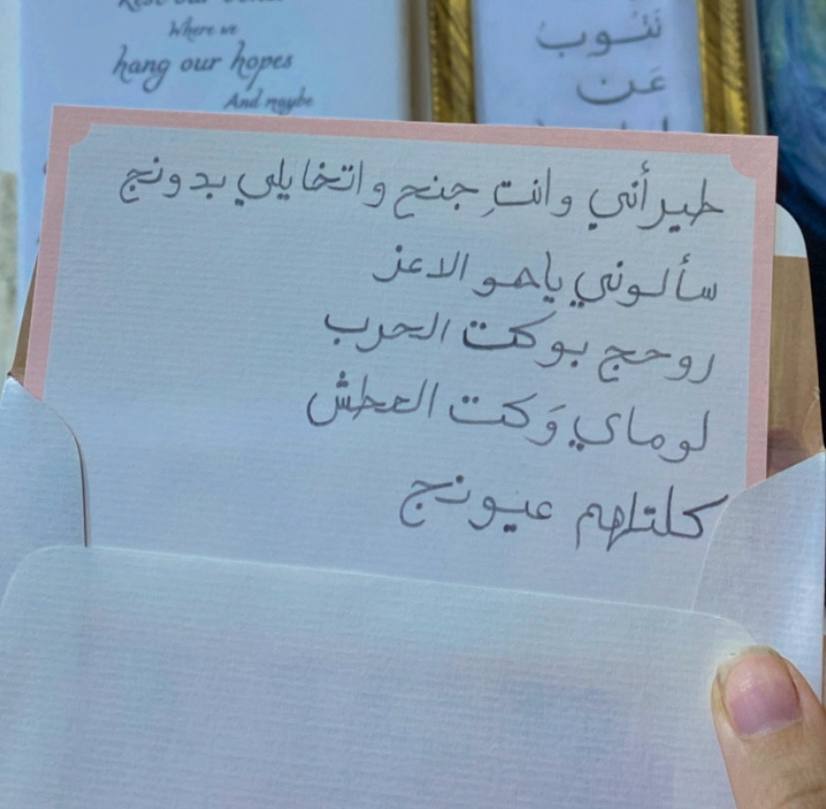 Where we
hang our hopes
And maybe
نتوب
عن
طير أني وانتِ جنح واتخايلي بدونج
سألوني ياهو الاعز
روحج بوكت الحرب
لو ماي وَكت العطش
كلتلهم عيونج